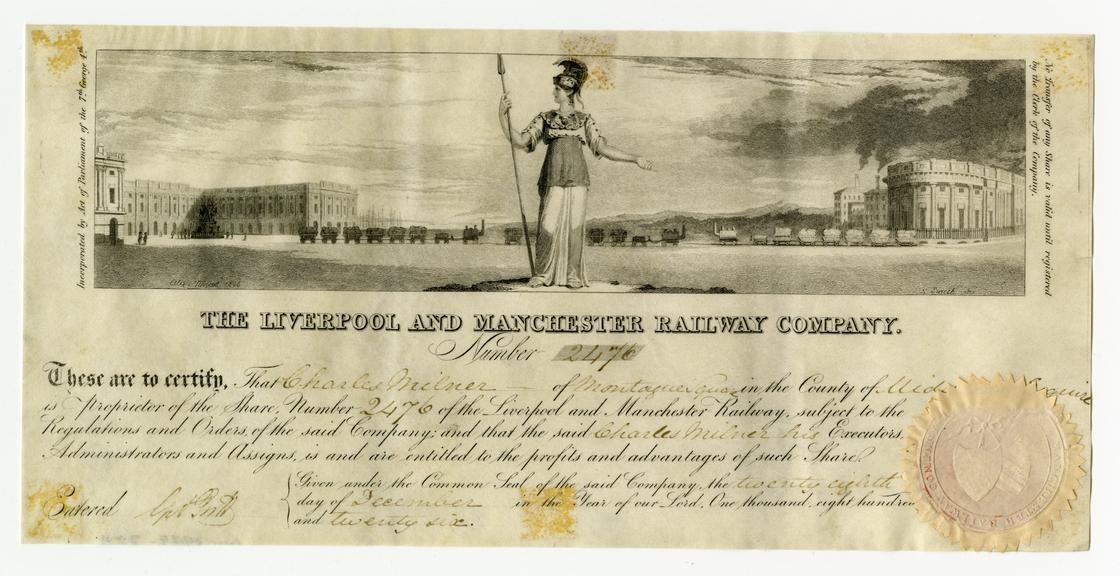 Incorporated by Act of Parliament of the 7th George 4th
No Transfer of any Share is valid until registered
by the Clerk of the Company.
THE LIVERPOOL AND MANCHESTER RAILWAY COMPANY.
Number 2476
These are to certify, That Charles Milner of Montague Square in the County of
is Proprietor of the Share, Number 2476 of the Liverpool and Manchester Railway, subject to the
Regulations and Orders of the said Company; and that the said Charles Milner his Executors,
Administrators and Assigns, is and are entitled to the profits and advantages of such Share.
Given under the Common Seal of the said Company, the twenty eighth
day of December in the Year of our Lord, One thousand, eight hundred
and twenty six.
Entered